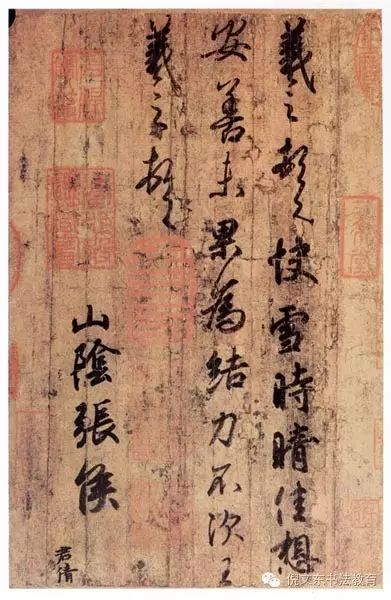 羲之頓首快雪時晴佳想
安善未果為結力不次王
羲之頓首
山陰張侯
君倩
倪文东书法教育